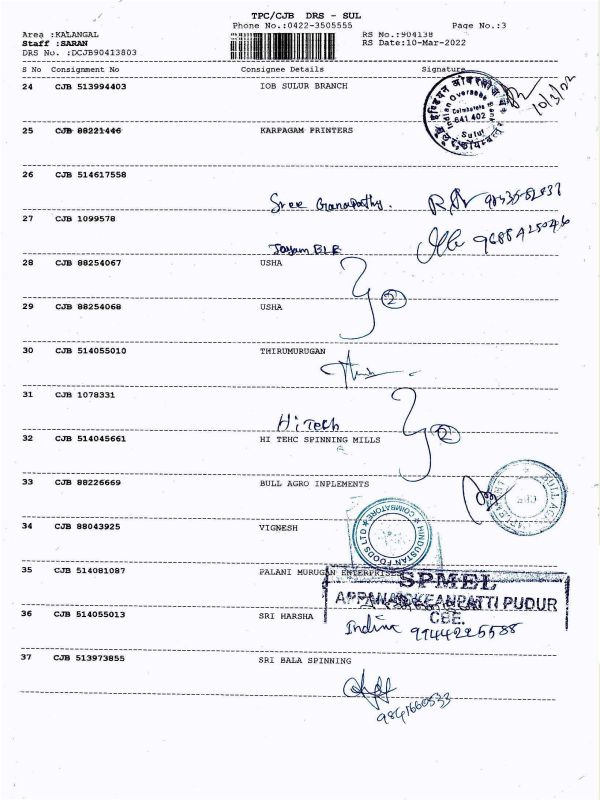 TPC/CJB DRS - SUL
Phone No.:0422-3505555 Page No.:3
Area :KALANGAL RS No.:904138
Staff :SARAN RS Date:10-Mar-2022
DRS No. :DCJB90413803
S No Consignment No Consignee Details Signature
24 CJB 513994403 IOB SULUR BRANCH
Indian Overseas Bank
Coimbatore
641 402
Sulur
10/3/22
25 CJB 88221446 KARPAGAM PRINTERS
26 CJB 514617558
Sree Ganapathy.
27 CJB 1099578
Jayam BLR
28 CJB 88254067 USHA
2
29 CJB 88254068 USHA
30 CJB 514055010 THIRUMURUGAN
31 CJB 1078331
Hi Tech
32 CJB 514045661 HI TEHC SPINNING MILLS
2
33 CJB 88226669 BULL AGRO INPLEMENTS
BULL AGRO
34 CJB 88043925 VIGNESH
HINDUSTAN FOODS LTD
COIMBATORE
35 CJB 514081087 PALANI MURUGAN ENTERPRISES
SPMEL
PUDUR
36 CJB 514055013 SRI HARSHA
CBE.
9944225588
37 CJB 513973855 SRI BALA SPINNING